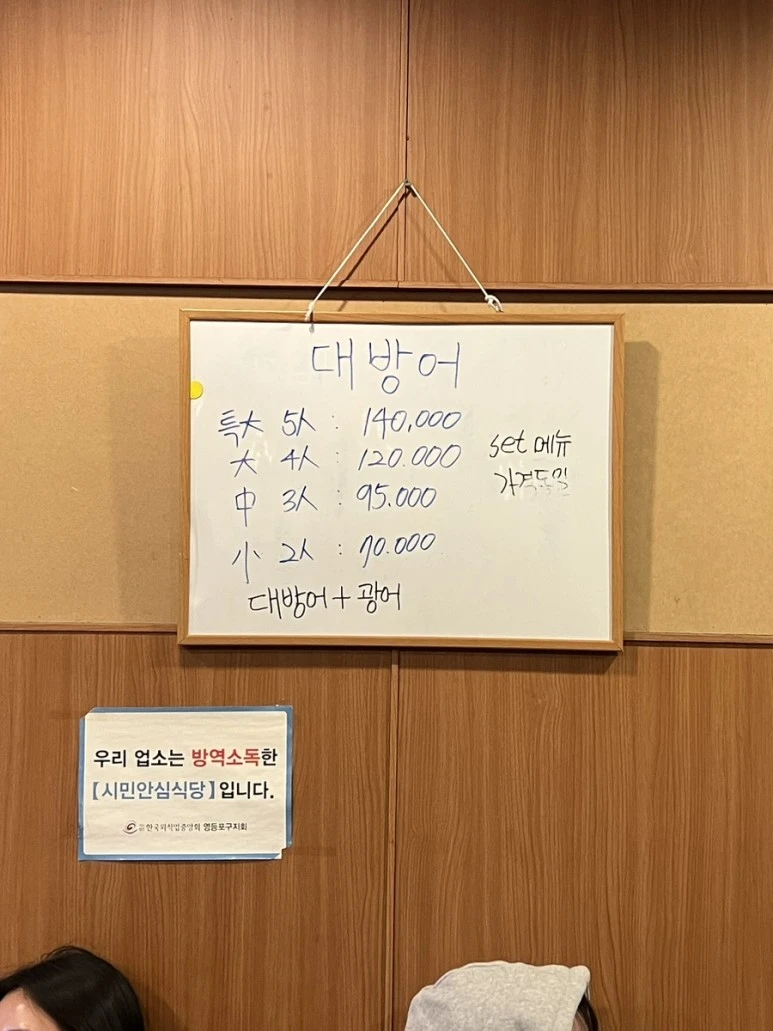 대방어
특大 5人 : 140,000
大 4人 : 120.000
中 3人 : 95.000
小 2人 : 70.000
대방어 + 광어
set 메뉴
가격동일
우리 업소는 방역소독한
[시민안심식당]입니다.
한국외식업중앙회 영등포구지회